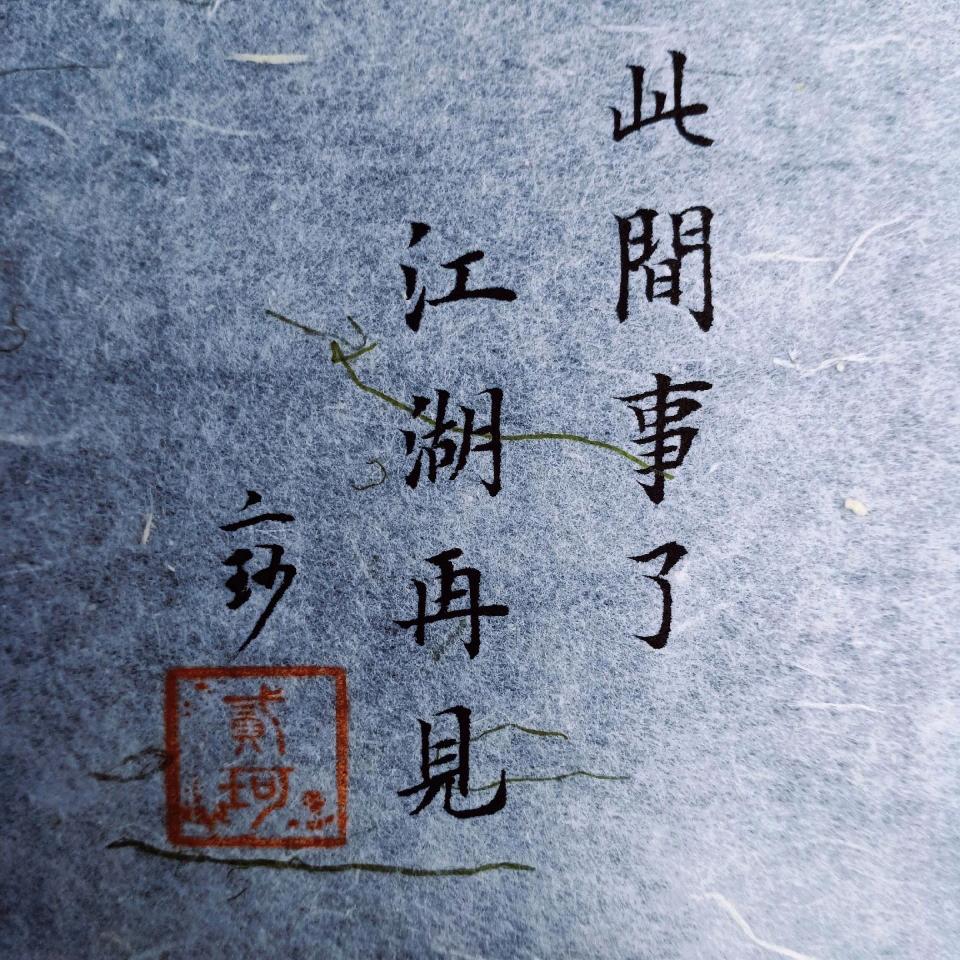 此間事了
江湖再見
貳珂